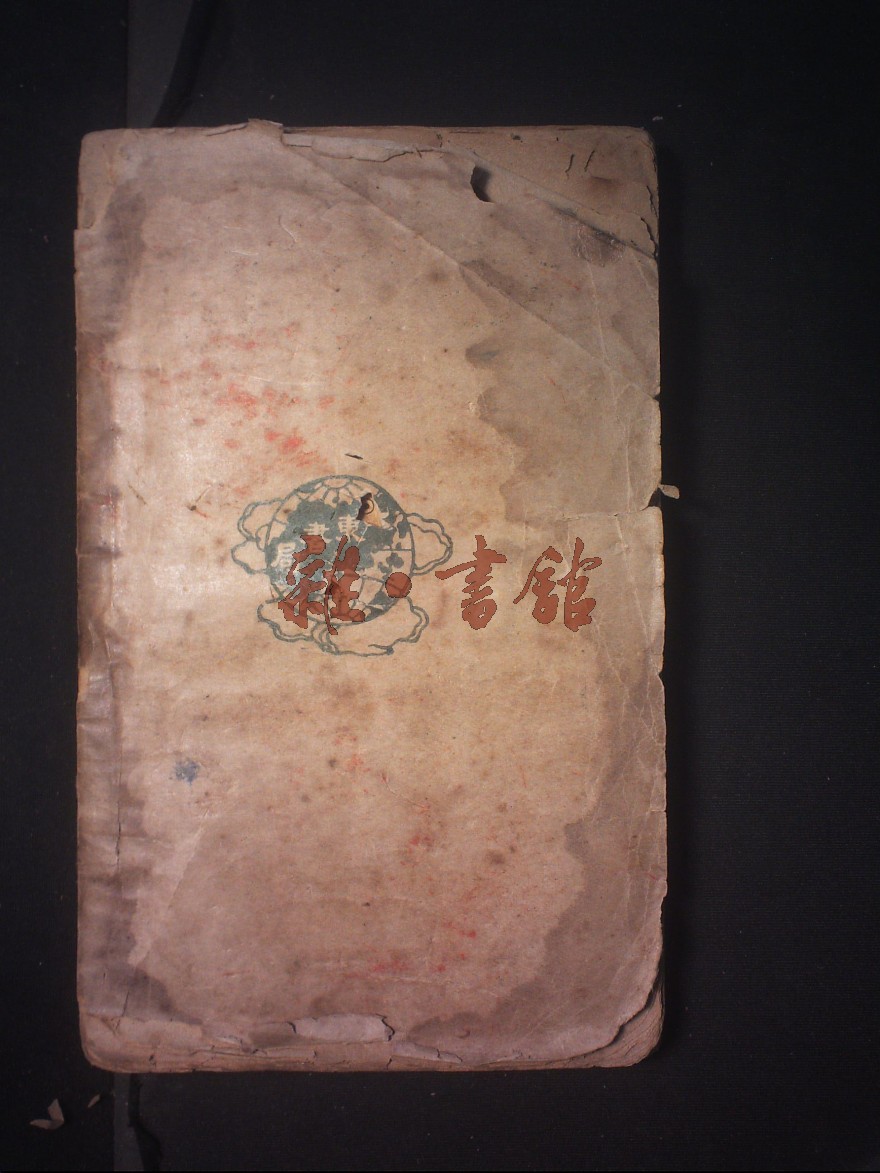 大東書局
雜·書館